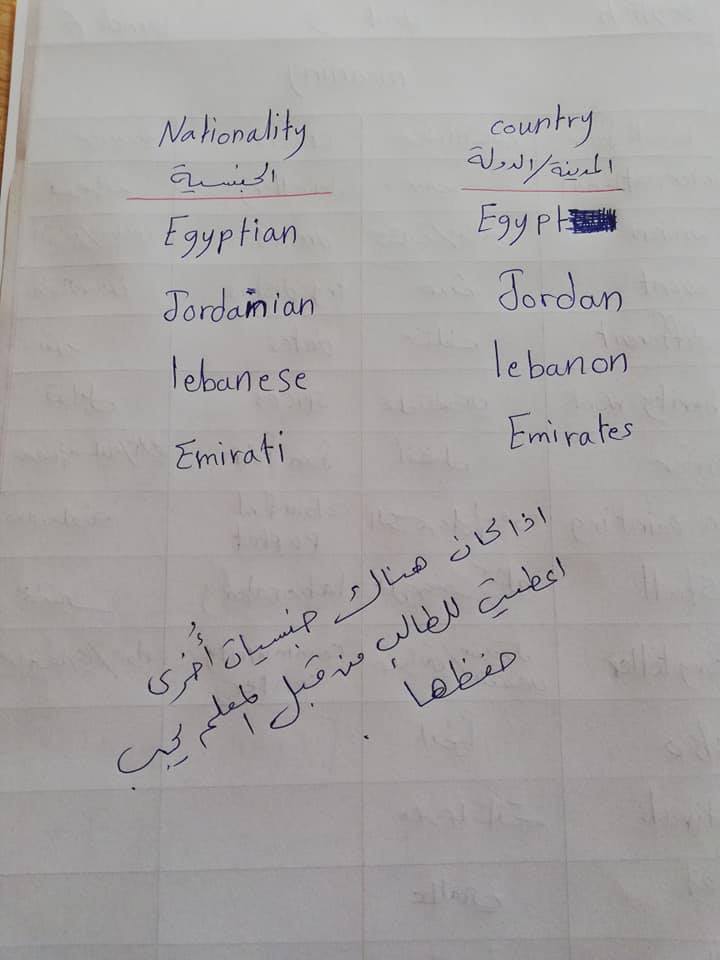 Nationality country
الجنسية المدينة/الدولة
Egyptian Egypt
Jordanian Jordan
lebanese lebanon
Emirati Emirates
اذا كان هناك جنسيات أُخرى
اعطيت للطالب من قبل المعلم يجب
حفظها .